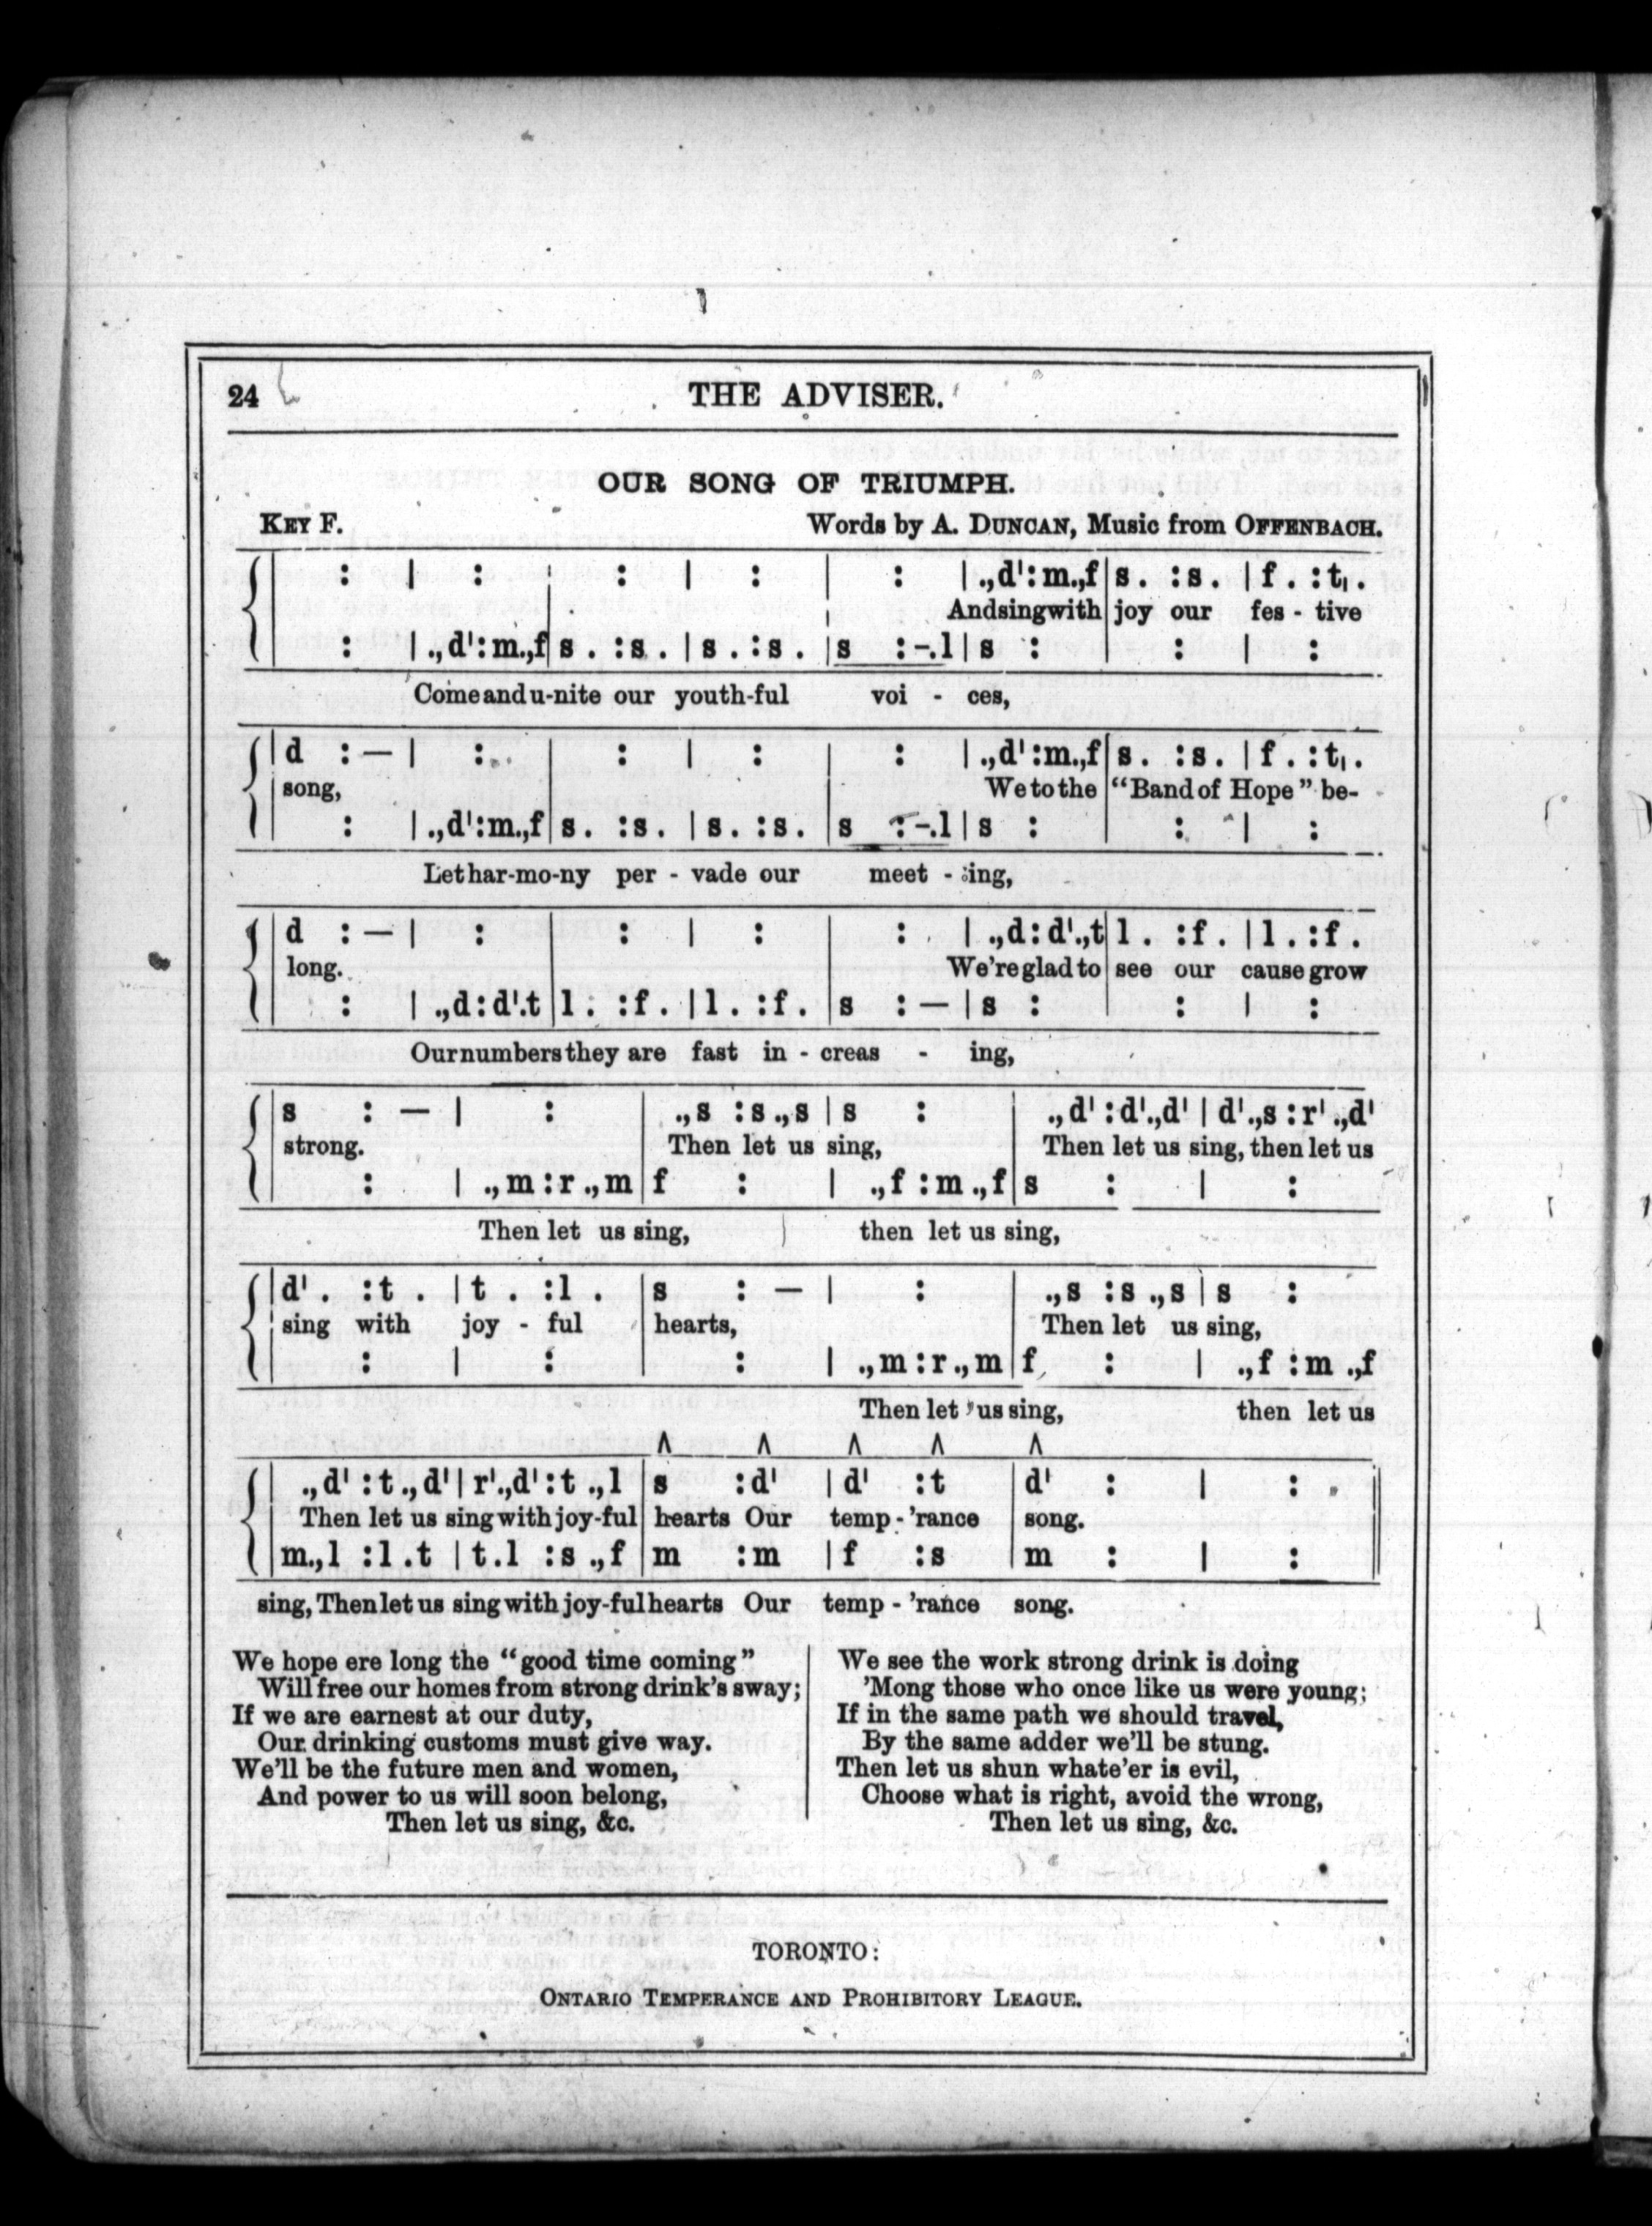 24
THE ADVISER.
OUR SONG OF TRIUMPH.
KEY F. Words by A. DUNCAN, Music from OFFENBACH.
: | : | : | : | : | .,d':m.,f | s . :s . | f . :t₁ .
Andsingwith joy our fes - tive
: | .,d':m.,f | s . :s . | s . :s . | s :-.l | s : | : | :
Comeandu-nite our youth-ful voi - ces,
d :— | : | : | : | : | .,d':m.,f | s . :s . | f . :t₁ .
song, We to the “Band of Hope” be-
: | .,d':m.,f | s . :s . | s . :s . | s :-.l | s : | : | :
Lethar-mo-ny per - vade our meet - ing,
d :— | : | : | : | : | .,d:d'.,t | l . :f . | l . :f .
long. We're glad to see our cause grow
: | .,d:d'.t | l . :f . | l . :f . | s :— | s : | : | :
Ournumbersthey are fast in - creas - ing,
s :— | : | .,s :s .,s | s : | .,d' :d'.,d' | d'.,s :r'.,d'
strong. Then let us sing, Then let us sing, then let us
: | .,m :r .,m | f : | .,f :m .,f | s : | :
Then let us sing, then let us sing,
d' . :t . | t . :l . | s :— | : | .,s :s .,s | s :
sing with joy - ful hearts, Then let us sing,
: | : | : | .,m :r .,m | f : | .,f :m .,f
Then let us sing, then let us
Λ Λ Λ Λ Λ
.,d' :t .,d' | r'.,d' :t .,l | s :d' | d' :t | d' : | :
Then let us sing with joy-ful hearts Our temp - 'rance song.
m.,l :l .t | t .l :s .,f | m :m | f :s | m : | :
sing, Thenletus sing with joy-fulhearts Our temp - 'rance song.
We hope ere long the “good time coming”
Will free our homes from strong drink's sway;
If we are earnest at our duty,
Our drinking customs must give way.
We'll be the future men and women,
And power to us will soon belong,
Then let us sing, &c.
We see the work strong drink is doing
'Mong those who once like us were young;
If in the same path we should travel,
By the same adder we'll be stung.
Then let us shun whate'er is evil,
Choose what is right, avoid the wrong,
Then let us sing, &c.
TORONTO:
ONTARIO TEMPERANCE AND PROHIBITORY LEAGUE.